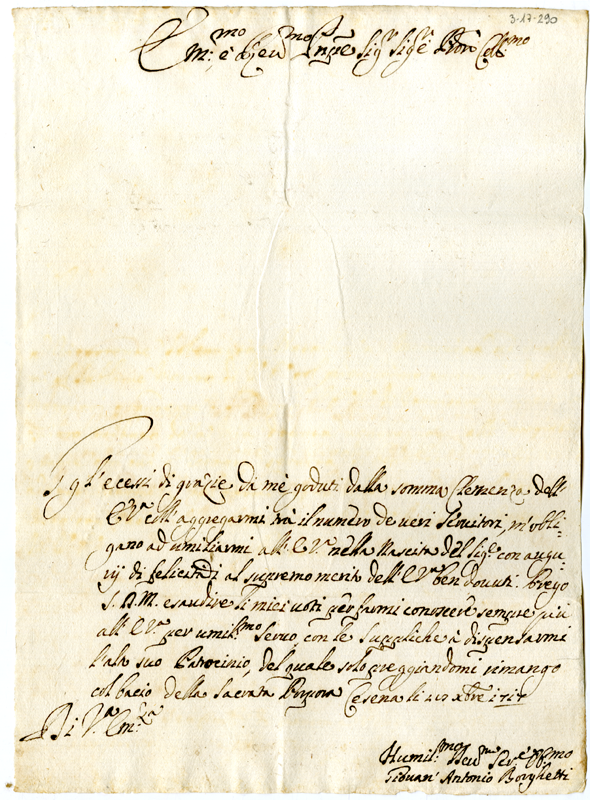 3-17-290
Em:mo e Rev:mo Pnpe Sig:r Sig:r e Pron Coll:mo
Gl'ecessi di grazie da me goduti dalla somma Clemenza dell'
E V.a coll'aggregarmi trà il numero de veri servitori, m'obli-
gano ad umiliarmi all'E.V.a nella Nascita del Sig.re con augu-
rij di felicità al supremo merito dell'E V.a ben douuti. Prego
S. D. M. esaudire li miei uoti per farmi conoscere sempre più
all'E V.a per umil:mo seruo, con le suppliche à dispensarmi
l'alto suo Patrocinio, del quale solo preggiandomi rimango
col bacio della Sacrata Porpora Cesena li xbre 1717
Di V.a Em:za
Humil:mo Deu:mo Ser.e Obl:mo
Antonio Borghetti